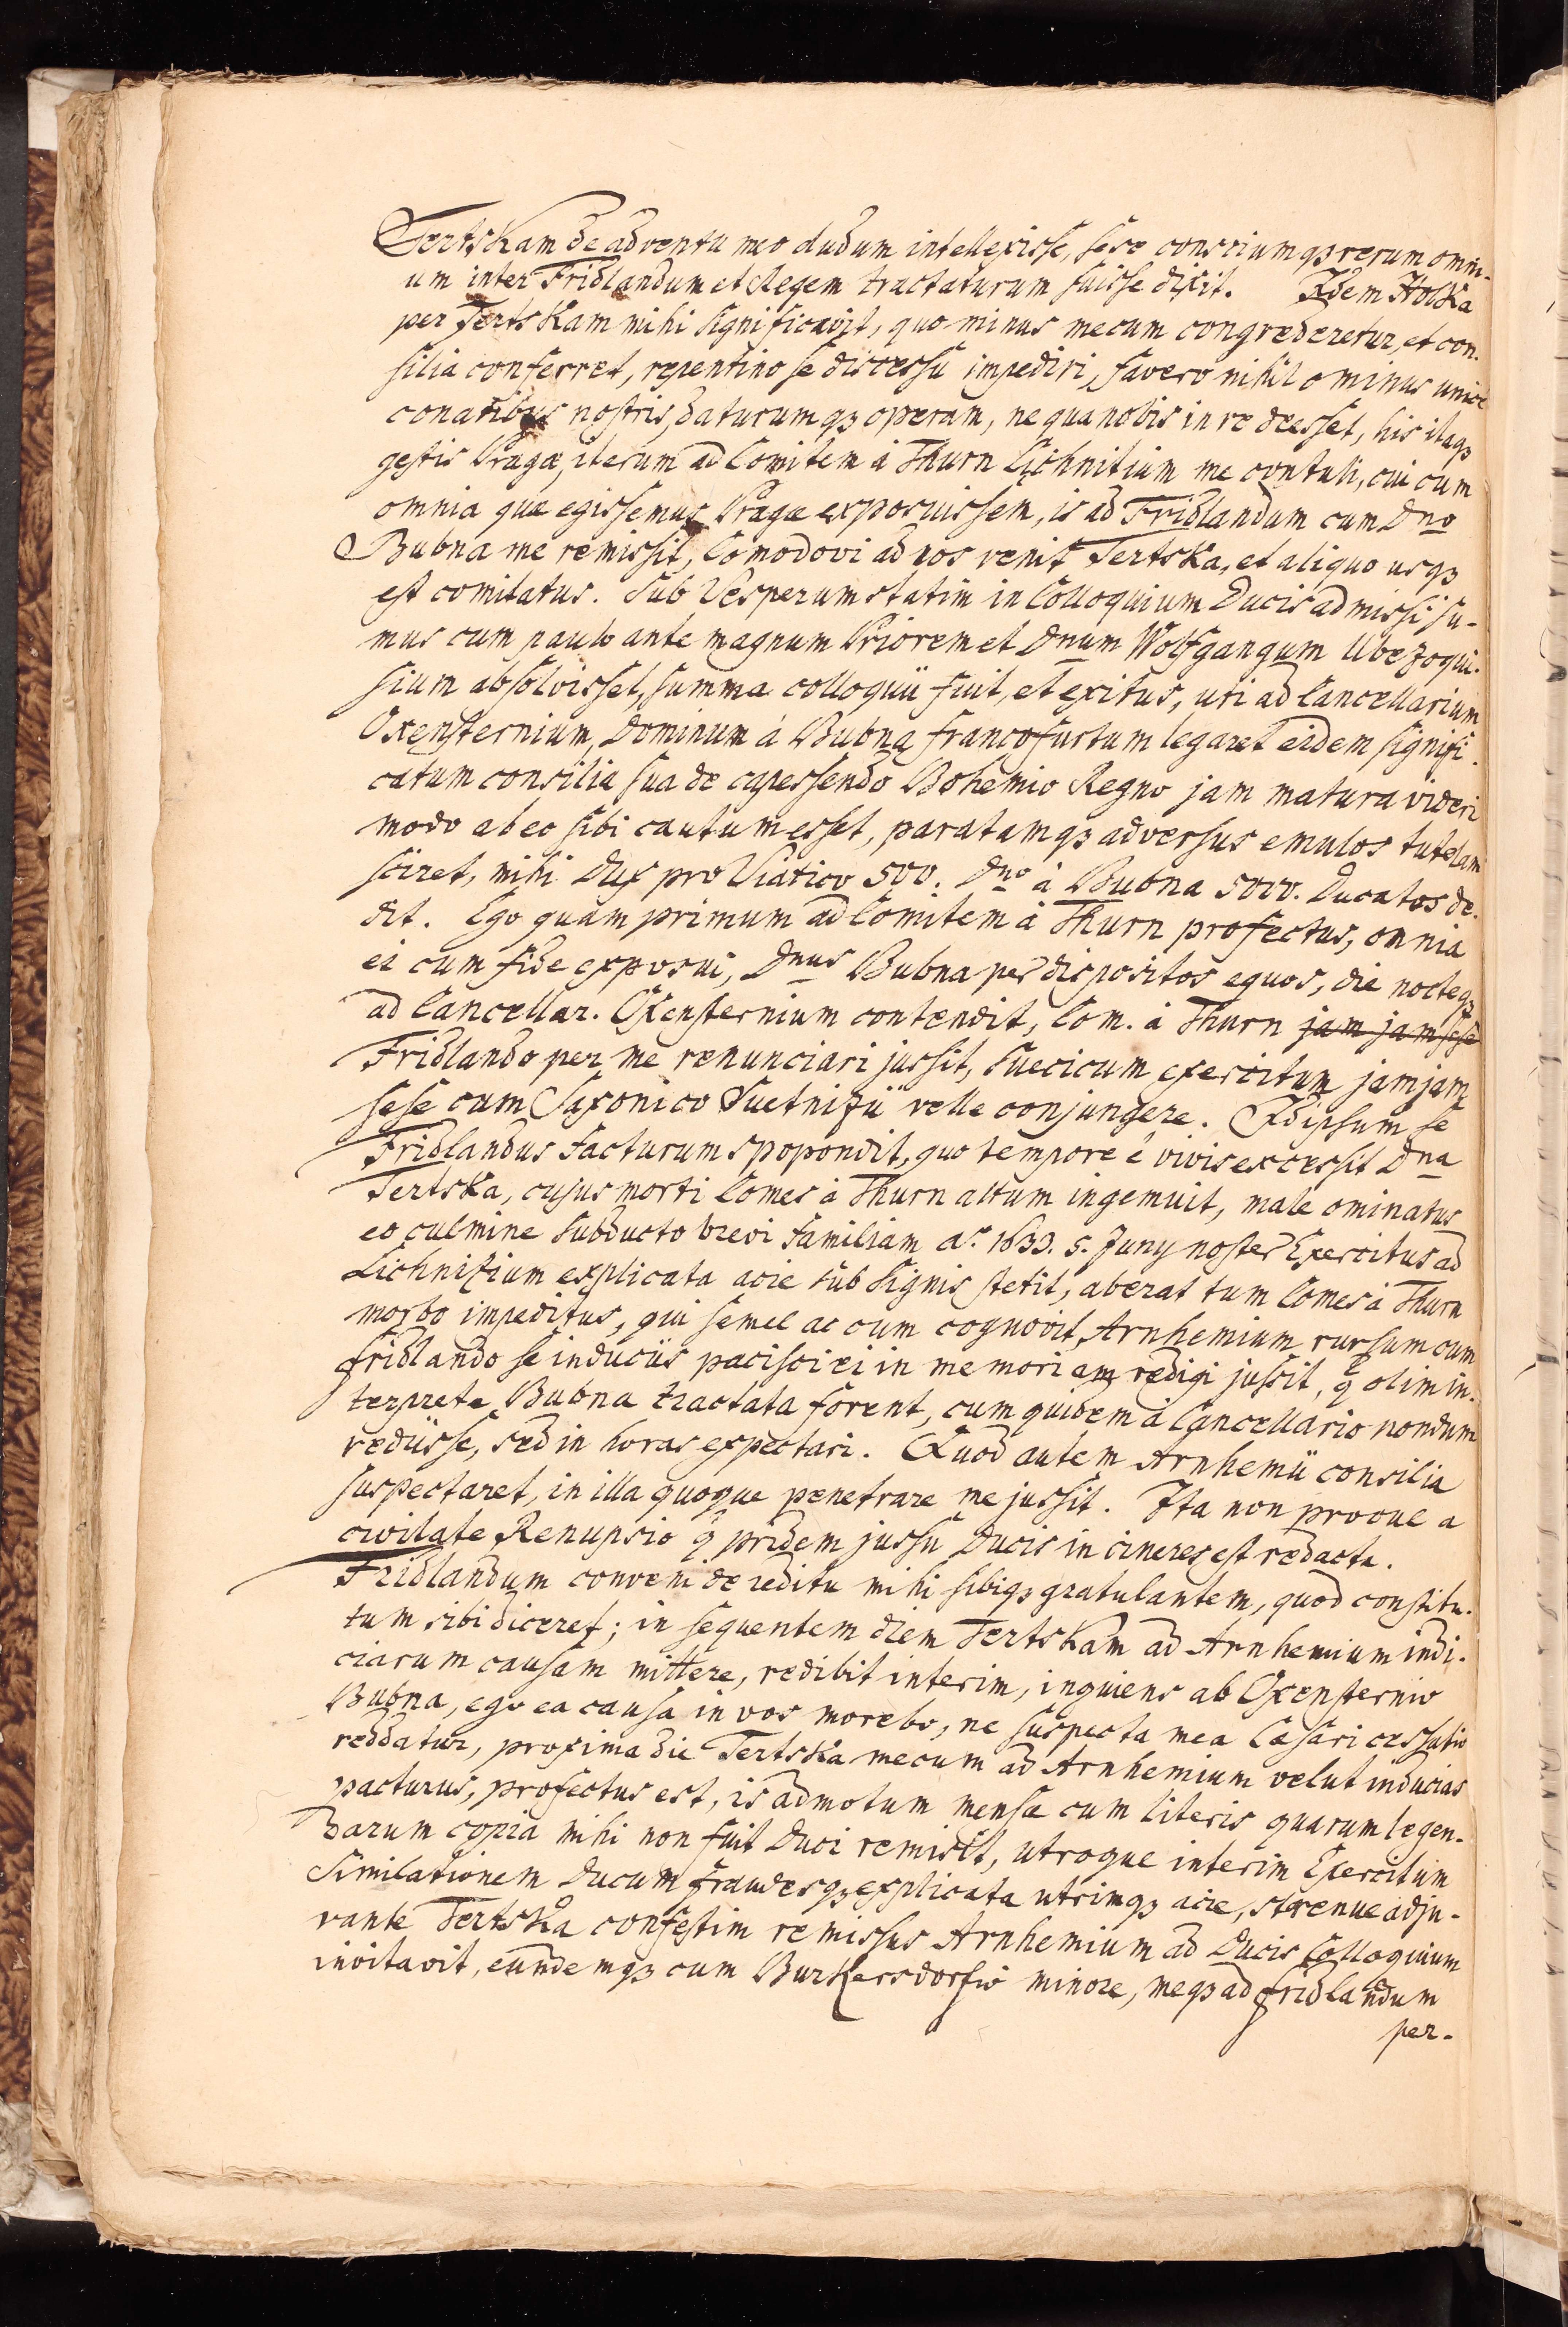 Tertskam de adventu meo dudum intellexisse, sese conscium qꝫ rerum omni-
um inter Fridlandum et Regem tractaturum fuisse dixit. Idem Holka
per Tertskam mihi significavit, quo minus mecum congrederetur, et con-
silia conferret, repentino se discessu impediri, favero nihil ominus unice
conatibus nostris, daturum qꝫ operam, ne qua nobis in re deesset, his itaqꝫ
gestis Pragæ, iterum ad Comitem à Thurn Lichnitium me contuli, cui cum
omnia quæ egissemus Pragæ exposuissem, is ad Fridlandum cum Dno
Bubna me remissit, Comodovi ad nos venit Tertska, et aliquo usqꝫ
est comitatus. Sub Vesperum statim in Colloquium Ducis admissi su-
mus cum paulo ante magnum Priorem et Dnum Wolfgangum Ubezoqui-
sium absolvisset, summa colloquii fuit, et exitus, uti ad Cancellarium
Oxensternium, Dominum à Bubna francofurtum legaret eidem signifi-
catum consilia sua de capessendo Bohemio Regno jam matura videri
modo ab eo sibi cautum esset, paratamqꝫ adversus emulos tutelam
sciret, mihi Dux pro Viatico 500. Dno à Bubna 5000. Ducatos de-
dit. Ego quam primum ad Comitem à Thurn profectus, omnia
ei cum fide exposui, Dnus Bubna per dispositos equos, die nocteqꝫ
ad Cancellar. Oxensternium contendit, Com. à Thurn jam jam sese
Fridlando per me renunciari jussit, Suecicum exercitum jamjam
sese cum Saxonico Suetnizii velle conjungere. Idipsum se
Fridlandus facturum spopondit, quo tempore è vivis excessit Dna
Tertska, cujus morti Comes à Thurn altum ingemuit, male ominatus
eo culmine subducto brevi familiam aº. 1633. 5. Juny noster Exercitus ad
Lichnizium explicata acie sub signis stetit, aberat tum Comes à Thurn
morbo impeditus, qui semel ac cum cognovit, Arnhemium rursum cum
fridlando se induciis pacisci ei in memoriam redigi jussit, q̃ olim in-
terprete Bubna tractata forent, cum quidem à Cancellario nondum
rediisse, sed in horas expectari. Quod autem Arnhemii consilia
suspectaret, in illa quoque penetrare me jussit. Ita non procul a
civitate Renupsio q̃ pridem jussu Ducis in cineres est redacta.
Fridlandum conveni de reditu mihi sibiqꝫ gratulantem, quod constitu-
tum sibi diceret; in sequentem diem Tertskam ad Arnhemium indi-
ciarum causam mittere, redibit interim, inquiens ab Oxensternio
Bubna, ego ea causa in vos morebo, ne suspecta mea Cæsari cessatio
reddatur, proxima die Tertska mecum ad Arnhemium velut inducias
pacturus, profectus est, is admotum mensæ cum literis quarum legen-
darum copia mihi non fuit Duci remisit, utroque interim Exercitum
Similationem Ducum fraudesqꝫ explicata utrimqꝫ acie, strenue adju-
vante Tertska confestim remissus Arnhemium ad Ducis Colloquium
invitavit, eundemqꝫ cum Burkersdorfio minore, meqꝫ ad fridlandum
per-